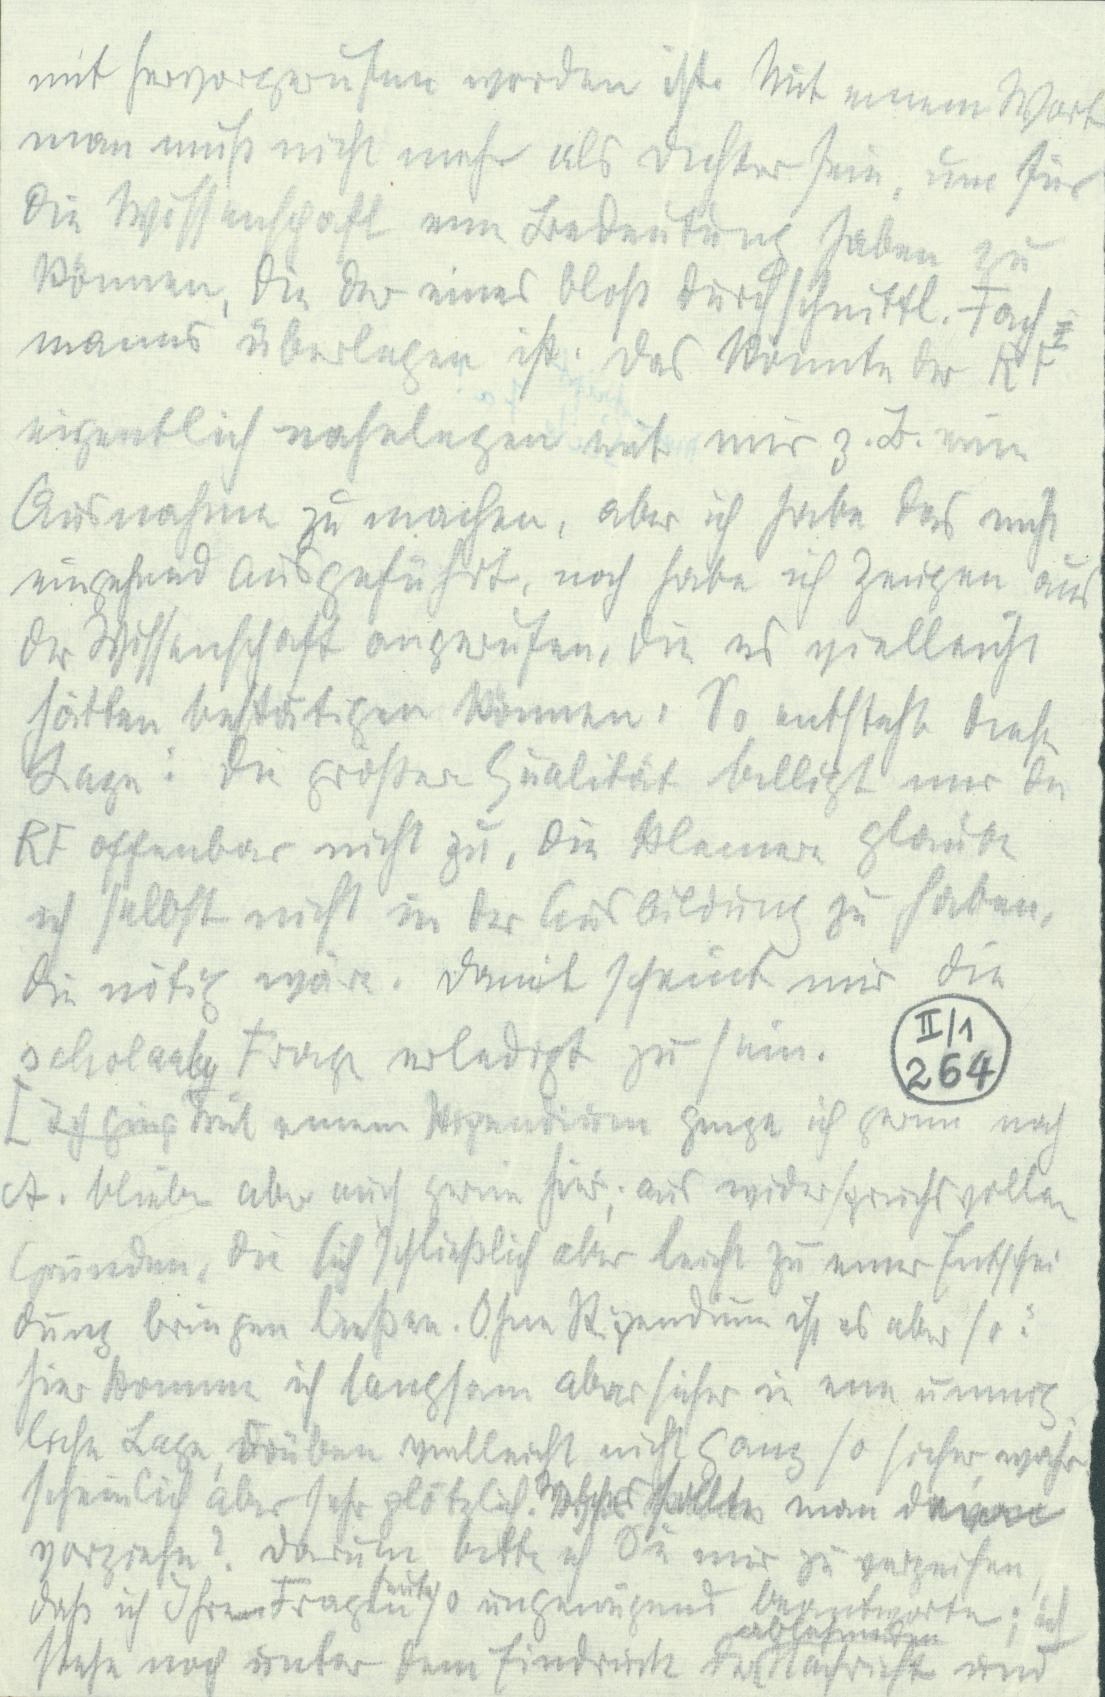 mit hervorgerufen worden ist. Mit einem Wort
man muß nicht mehr als Dichter sein, um für
die Wissenschaft eine Bedeutung haben zu
können, die der eines bloß durchschnittl. Fach-
manns überlegen ist. Das könnte der RF
eigentlich nahelegen mit mir z.B. eine
Ausnahme zu machen, aber ich habe das nicht
eingehend ausgeführt, noch habe ich Zeugen aus
der Wissenschaft angerufen, die es vielleicht
hätten bestätigen können. So entsteht diese
Lage: die größere Qualität billigt mir die
RF offenbar nicht zu, die kleinere glaube
ich selbst nicht in der Ausbildung zu haben,
die nötig wäre. Damit scheint mir die
Frage erledigt zu sein.
II/1
264
Mit einem Stipendium ginge ich gerne nach
A. bliebe aber auch gerne hier; aus widerspruchsvollen
Gründen, die sich schließlich aber leicht zu einer Entschei
dung bringen ließen. Ohne Stipendium ist es aber so:
hier komme ich langsam aber sicher in eine unmög
liche Lage, drüben vielleicht nicht ganz so sicher, wahr
scheinlich aber sehr plötzlich. sollte man
vorziehn? Darum bitte ich Sie mir zu verzeihen,
daß ich Ihre Fragen heute so ungenügend beantworte; ich
ablehnenden
stehe noch unter dem Eindruck der Nachricht und